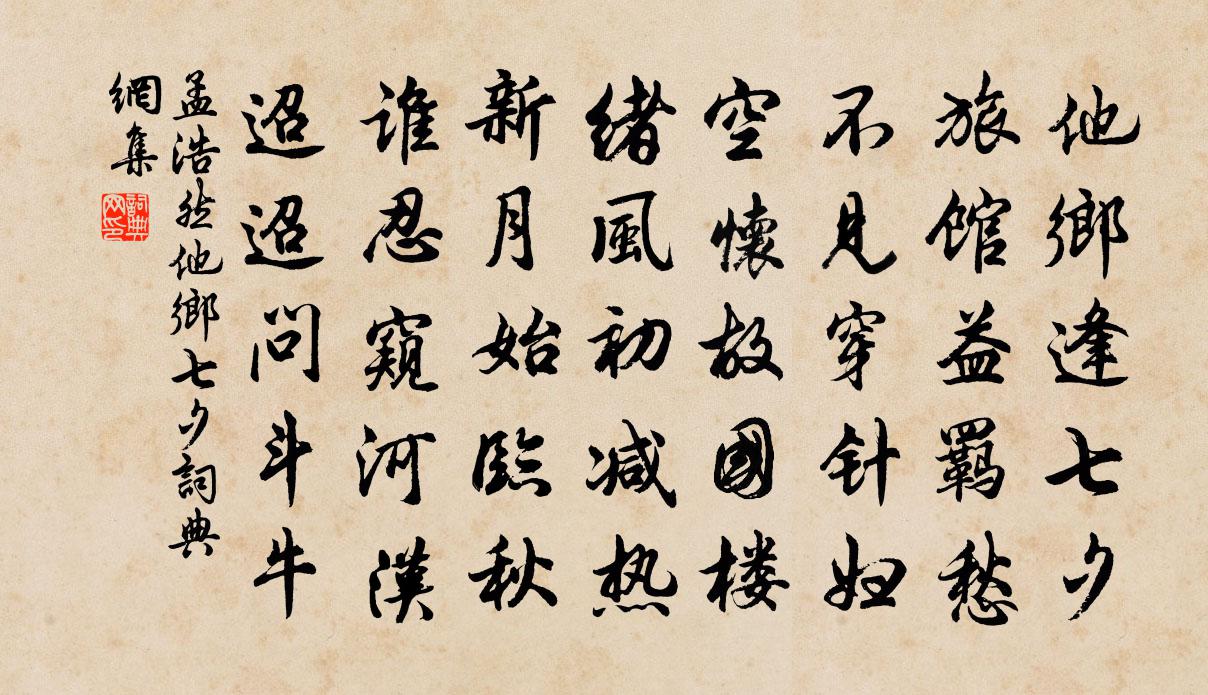 他鄉逢七夕
旅館益羈愁
不見穿針婦
空懷故國樓
緒風初減熱
新月始臨秋
誰忍窺河漢
迢迢問斗牛
孟浩然他鄉七夕詞典
網集
詞典
网印